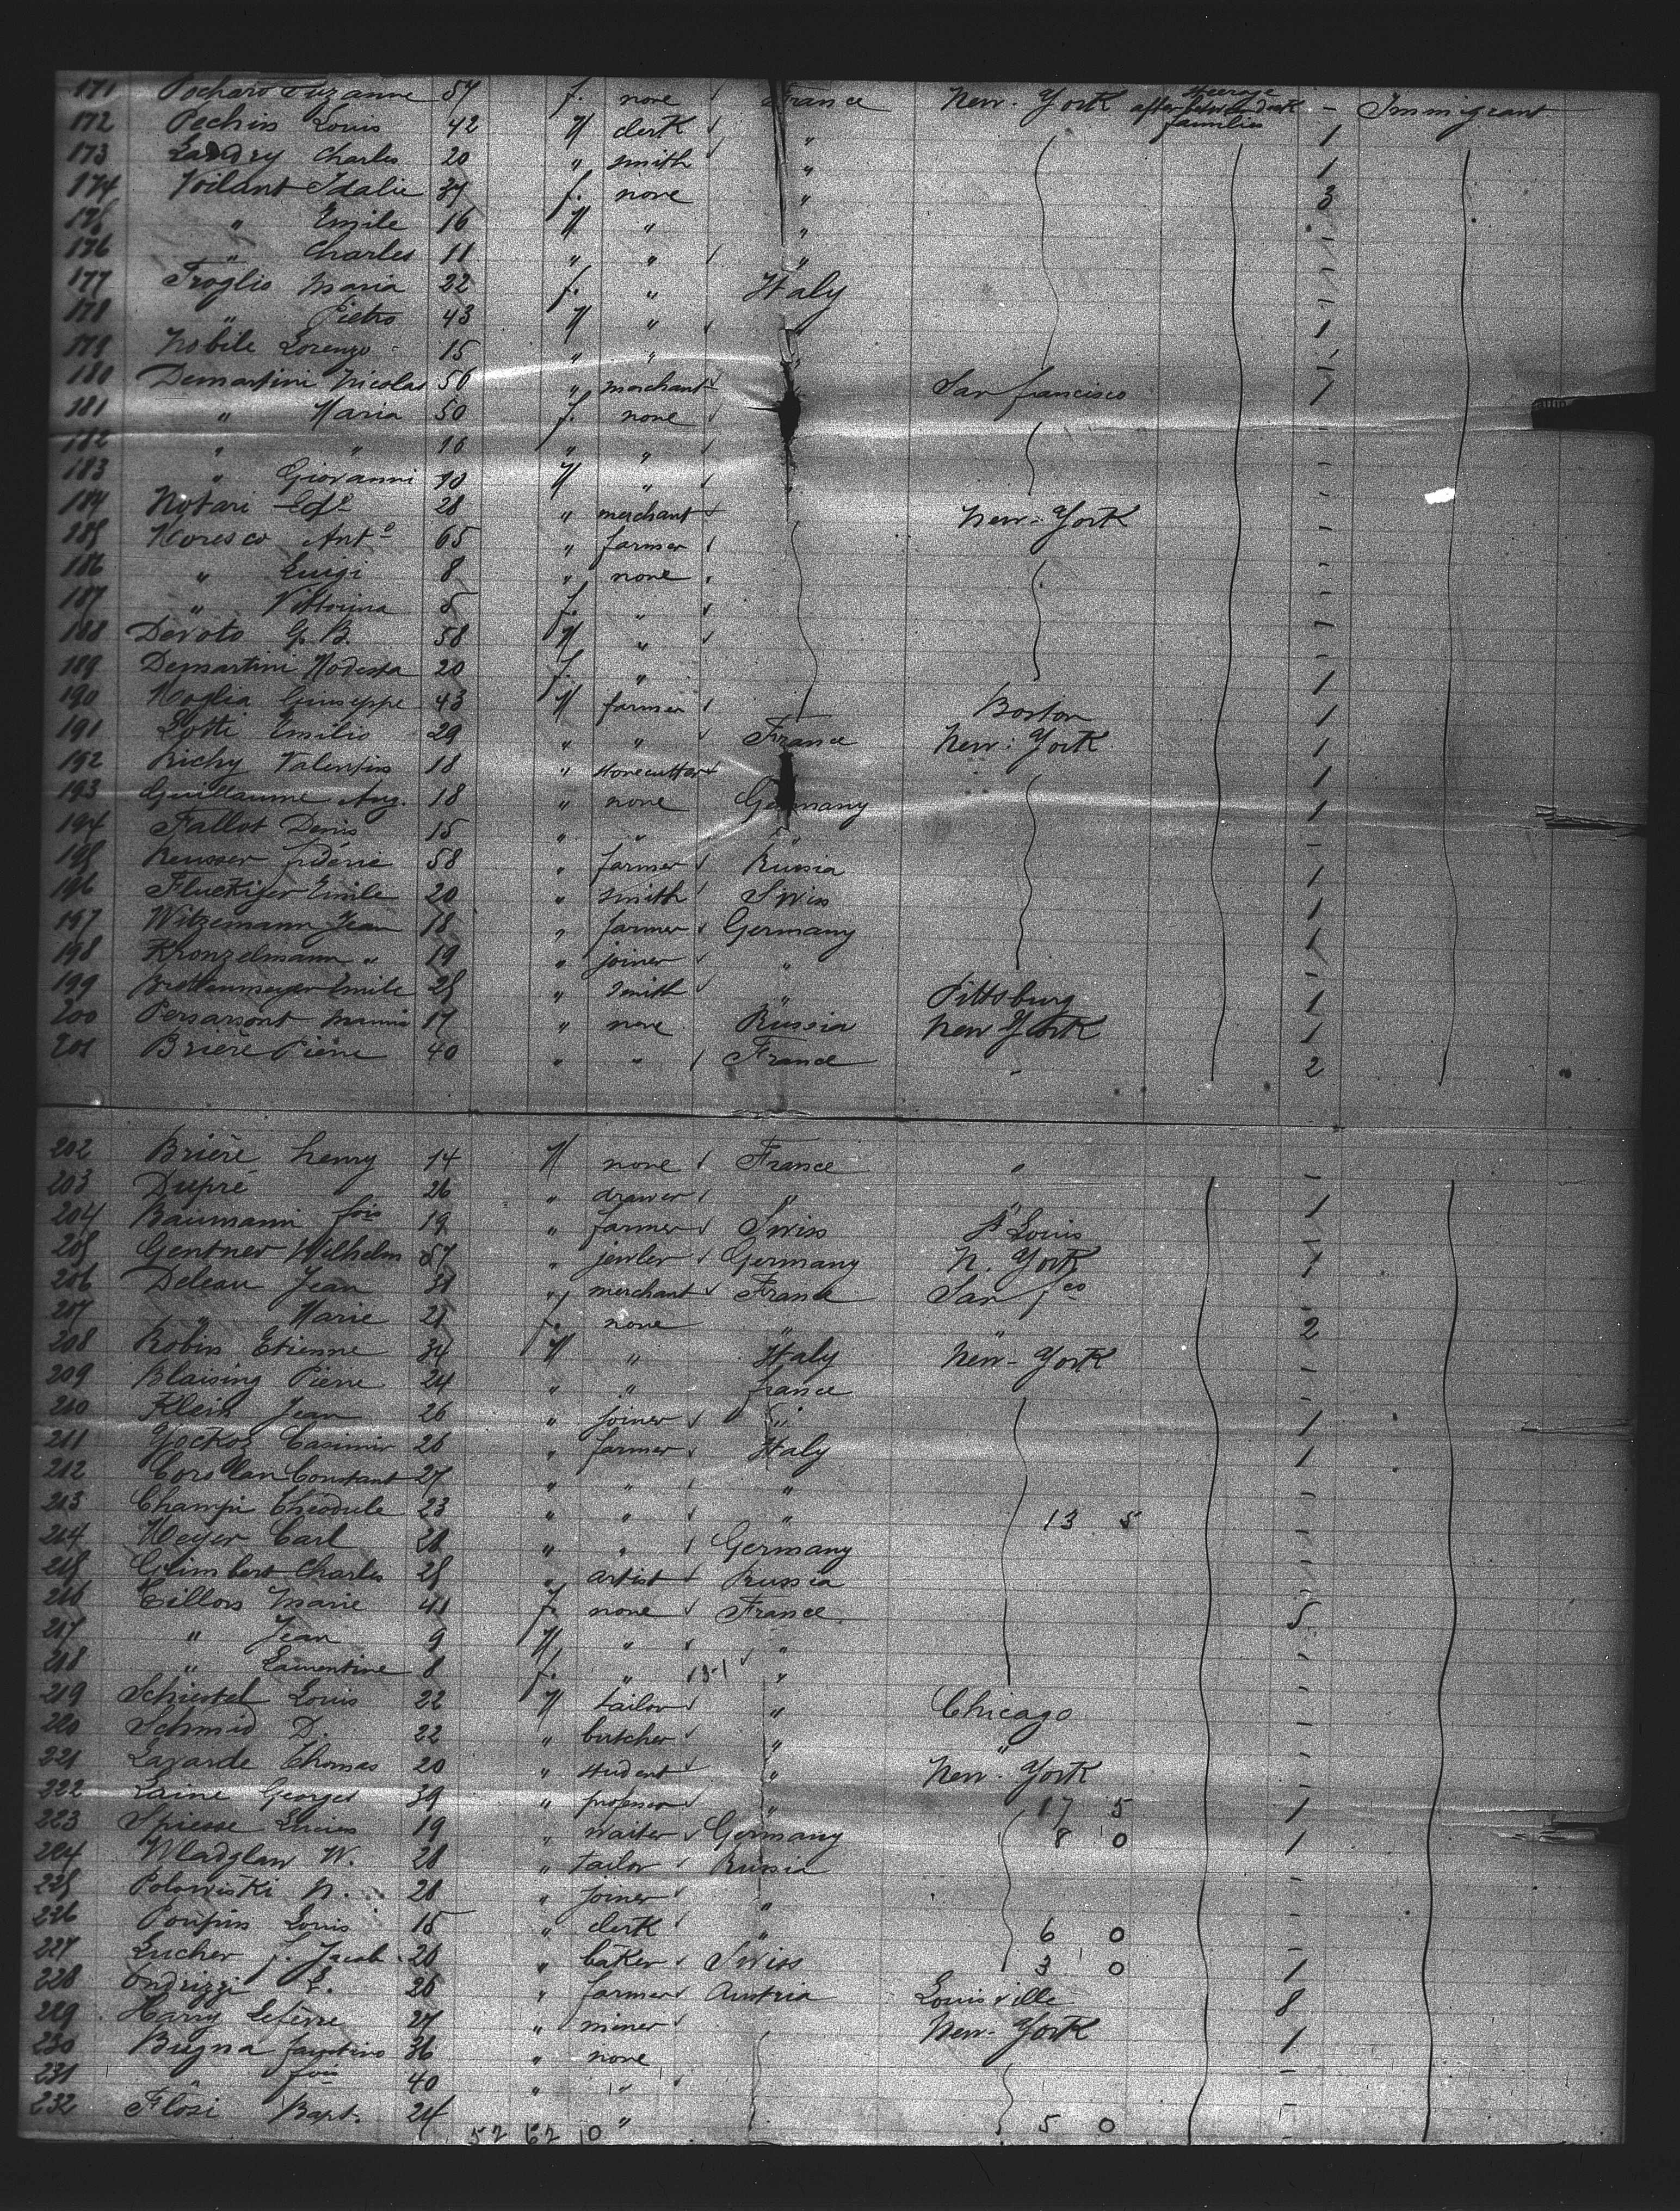 171 Pochard Suzanne 54 f. none France New-York Steerage after between deck families - Immigrant
172 Pechin Louis 42 M clerk " 1
173 Landry Charles 20 " smith " 1
174 Voilant Idalie 34 f. none " 3
175 " Emile 16 M " " -
176 " Charles 11 " " " -
177 Froglio Maria 22 f. " Italy -
178 " Pietro 43 M " 1
179 Nobile Lorenzo 15 " " -
180 Demartini Nicolas 56 " merchant San francisco 1
181 " Maria 50 f. none -
182 " " 16 " " -
183 " Giovanni 10 M " -
184 Notari Edo 28 " merchant New-York -
185 Moresco Anto 65 " farmer -
186 " Luigi 8 " none -
187 " Vittorina 5 f. " -
188 Devoto G. B. 58 M " -
189 Demartini Modesta 20 f. " 1
190 Moglia Giuseppe 43 M farmer Boston 1
191 Lotti Emilio 29 " " France New-York 1
192 Richy Valentin 18 " stonecutter 1
193 Guillaume Aug. 18 " none Germany 1
194 Fallot Denis 15 " " " -
195 Neusser frédéric 58 " farmer Russia 1
196 Fluckiger Emile 20 " smith Swiss 1
197 Witzemann Jean 18 " farmer Germany 1
198 Kronzelmann " 19 " joiner " -
199 Emile 25 " smith " Pittsburg 1
200 17 " none Russia New York 1
201 Brière Pierre 40 " " France " 2
202 Brière henry 14 M none France " -
203 Dupré 26 " drawer " 1
204 Baumann fois 19 " farmer Swiss St Louis -
205 Gentner Wilhelm 57 " jewler Germany N. York 1
206 Deleau Jean 31 " merchant France San fco
207 " Marie 21 f. none " " 2
208 Robin Etienne 34 M " Italy New-York -
209 Blaising Pierre 24 " " france -
210 Klein Jean 26 " joiner " 1
211 Yockoz Casimir 26 " farmer Italy 1
212 Constant 27 " " " -
213 Champi Théodule 23 " " " 13 5 -
214 Meyer Carl 28 " " Germany -
215 Grimbert Charles 25 " artist Russia -
216 Tillois Marie 41 f. none France 5
217 " Jean 9 M " " -
218 " Laurentine 8 f. " 151 " -
219 Schiestel Louis 22 M tailor " Chicago -
220 Schmid D. 22 " butcher " " -
221 Lazarde Thomas 20 " student " New-York -
222 Laine Georges 39 " professor " 17 5 1
223 Spiesse Lucien 19 " waiter Germany 8 0 1
224 Wladglaw W. 28 " tailor Russia -
225 Polowiski N. 28 " joiner " -
226 Poupin Louis 15 " clerk " 6 0 -
227 Lucher J. Jacob 20 " baker Swiss 3 0 1
228 Ondrizzi L. 26 " farmer Austria Louisville 8
229 Harry Lefevre 27 " miner New-York 1
230 Bugna faustino 36 " none -
231 " fois 40 " " -
232 Flosi Bapt. 24 " 5 0
52 62 10